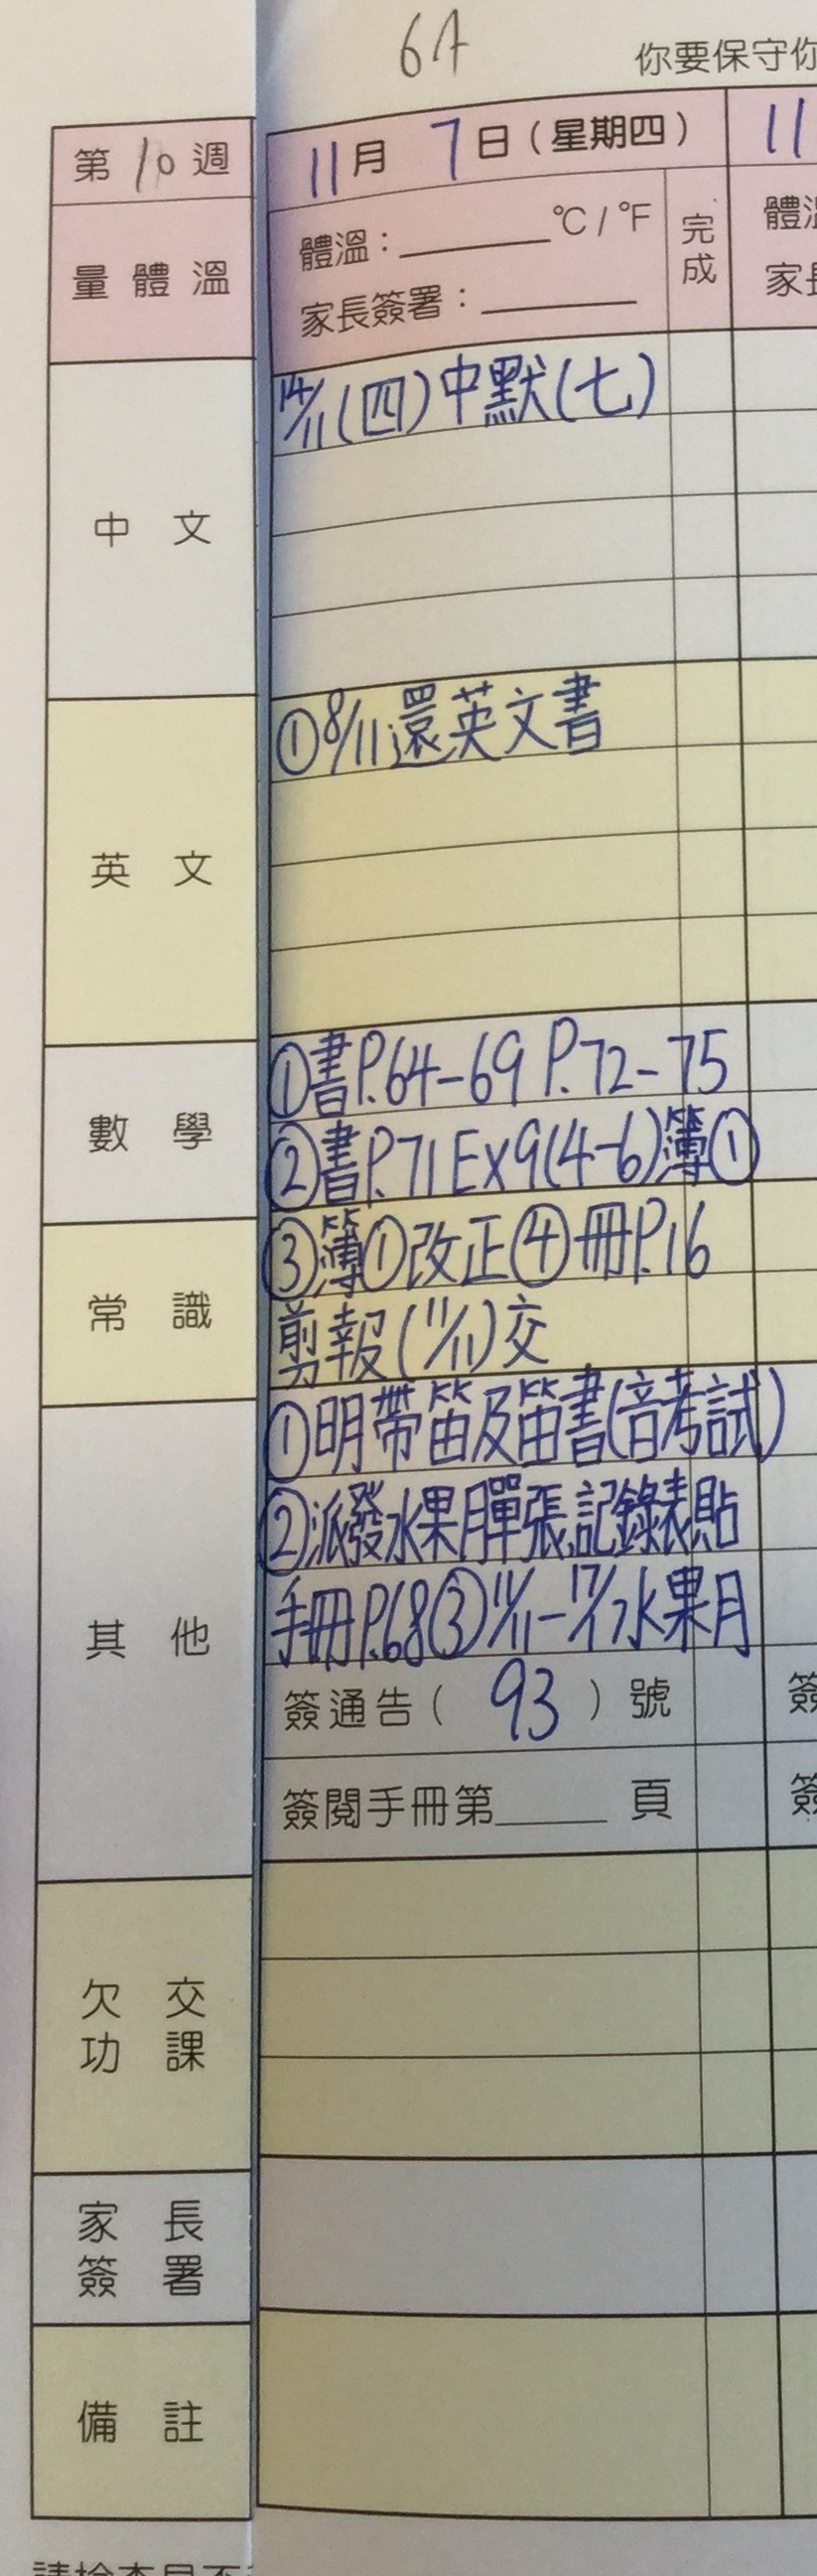 6A
你要保守你
第10週
11月7日(星期四)
11
量體溫
體溫：______°C / °F
完成
家長簽署：______
體溫
家長
中文
14/11(四)中默(七)
英文
①8/11還英文書
數學
①書P.64-69 P.72-75
②書P.71 Ex9(4-6)簿①
常識
③簿①改正④冊P.16
剪報(11/11)交
其他
①明帶笛及笛書(音考試)
②派發水果月單張,記錄表貼
手冊P.68③11/11-17/11水果月
簽通告(93)號
簽
簽閱手冊第______頁
簽
欠交功課
家長簽署
備註